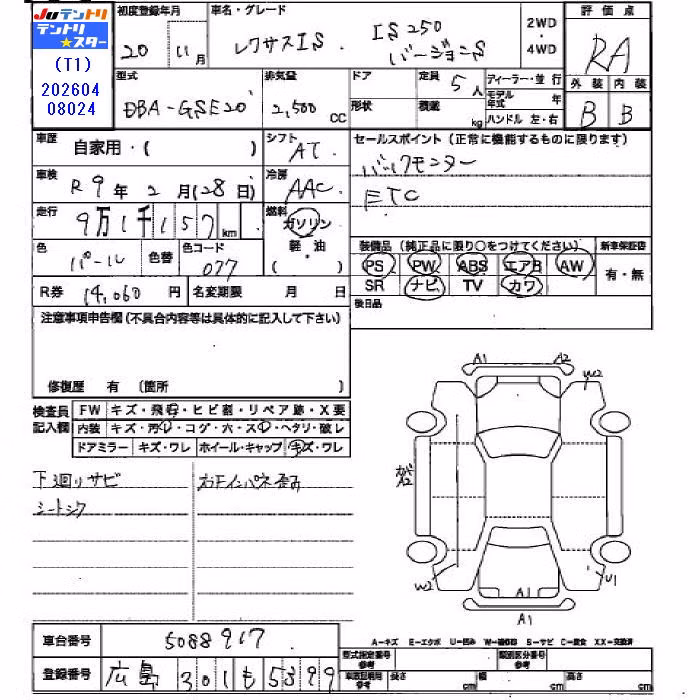 Juテントリ
テントリ★スター
(T1)
202604
08024
初度登録年月
20 11月
車名・グレード
レクサスIS. IS250
バージョンS
2WD
・
4WD
評価点
RA
外装 内装
B B
型式
DBA-GSE20
排気量
2,500 CC
ドア
形状
定員 5人
積載 kg
ディーラー・並行
モデル年式 年
ハンドル 左・右
車歴 自家用・( )
シフト AT
車検 R9年2月(28日)
冷房 AAC
走行 9万1千157km
燃料 ガソリン
軽油
( ・ )
色 パール
色替
色コード 077
R券 14,060円
名変期限 月 日
セールスポイント(正常に機能するものに限ります)
バックモニター
ETC
装備品(純正品に限り○をつけてください)
新車保証書
PS PW ABS エアB AW
有・無
SR ナビ TV カワ
後日品
注意事項申告欄(不具合内容等は具体的に記入して下さい)
修復歴 有 (箇所 )
検査員記入欄
FW キズ・飛石・ヒビ割・リペア跡・X要
内装 キズ・汚レ・コゲ・穴・スレ・ヘタリ・破レ
ドアミラー キズ・ワレ ホイール・キャップ キズ・ワレ
下廻リサビ
シートシワ
右Fインパネ歪ミ
A1 A2
W2
A2
W2
A1
U1
A1
車台番号 5088917
登録番号 広島 301 も 5399
A-キズ E-エクボ U-凹み W-補修跡 B-サビ C-腐食 XX-交換済
型式指定番号 参考
類別区分番号 参考
車検証明用 参考 長さ cm 幅 cm 高さ cm